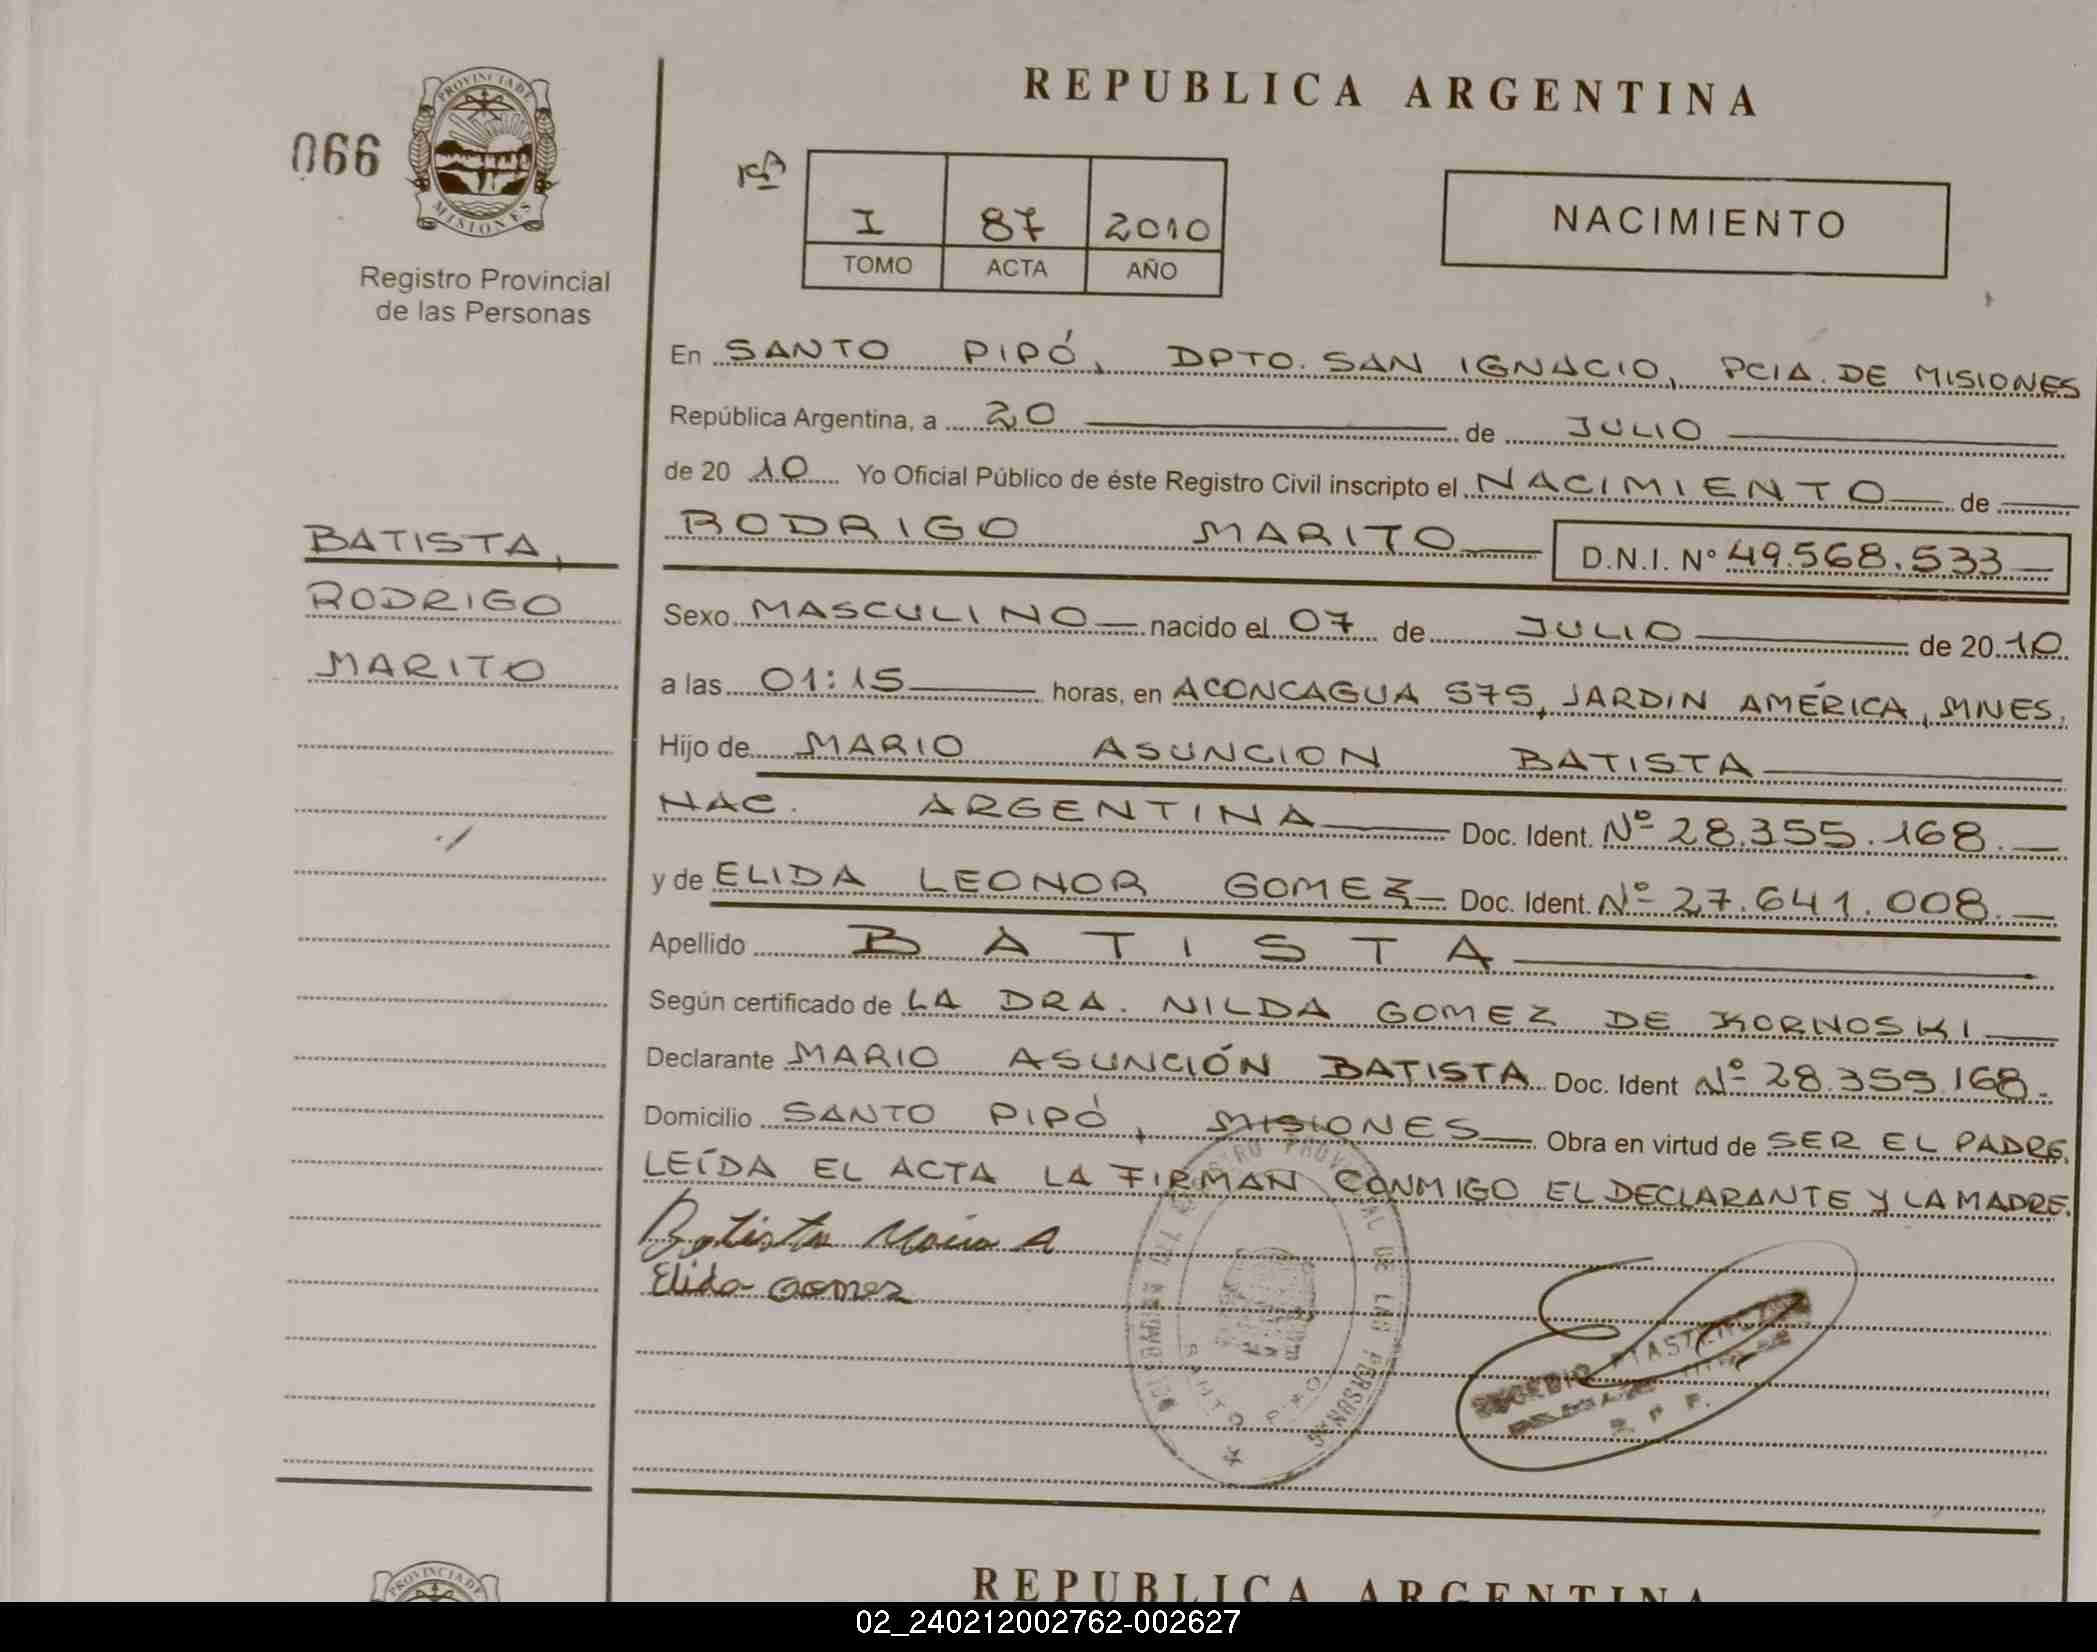 REPUBLICA ARGENTINA
066
PROVINCIA DE
MISIONES
Registro Provincial
de las Personas
I 87 2010
TOMO ACTA AÑO
NACIMIENTO
En SANTO PIPÓ, DPTO. SAN IGNACIO, PCIA. DE MISIONES
República Argentina, a 20 de JULIO
de 20 10 Yo Oficial Público de éste Registro Civil inscripto el NACIMIENTO de
RODRIGO MARITO D.N.I. Nº 49.568.533
BATISTA,
RODRIGO
MARITO
Sexo MASCULINO nacido el 07 de JULIO de 20 10
a las 01:15 horas, en ACONCAGUA 575, JARDIN AMÉRICA, MNES.
Hijo de MARIO ASUNCION BATISTA
NAC. ARGENTINA Doc. Ident. Nº 28.355.168.
y de ELIDA LEONOR GOMEZ Doc. Ident. Nº 27.641.008.
Apellido BATISTA
Según certificado de LA DRA. NILDA GOMEZ DE KORNOSKI
Declarante MARIO ASUNCIÓN BATISTA Doc. Ident Nº 28.355.168.
Domicilio SANTO PIPÓ, MISIONES Obra en virtud de SER EL PADRE.
LEÍDA EL ACTA LA FIRMAN CONMIGO EL DECLARANTE Y LA MADRE.
Batista Mario A
Elida Gomez
PROVINCIAL DE LAS PERSONAS
SANTO PIPO
R. P. P.
PROVINCIA DE
REPUBLICA ARGENTINA
02_240212002762-002627